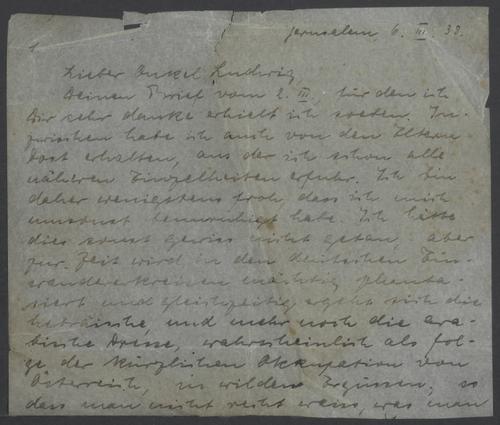 1
Jerusalem, 6. III. 38.
Lieber Onkel Ludwig,
Deinen Brief vom 2. III, für den ich
Dir sehr danke erhielt ich soeben. In-
zwischen habe ich auch von den Eltern
Post erhalten, aus der ich schon alle
näheren Einzelheiten erfuhr. Ich bin
daher wenigstens froh, dass ich mich
umsonst beunruhigt habe. Ich hätte
dies sonst gewiss nicht getan, aber
zur Zeit wird in den deutschen Ein-
wandererkreisen mächtig phanta-
siert und gleichzeitig ergeht sich die
hebräische, und mehr noch die ara-
bische Presse, wahrscheinlich als Fol-
ge der kürzlichen Okkupation von
Österreich, in wilden Ergüssen, so
dass man nicht recht weiss, was man